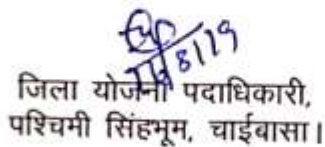 जिला योजना पदाधिकारी,
पश्चिमी सिंहभूम, चाईबासा।